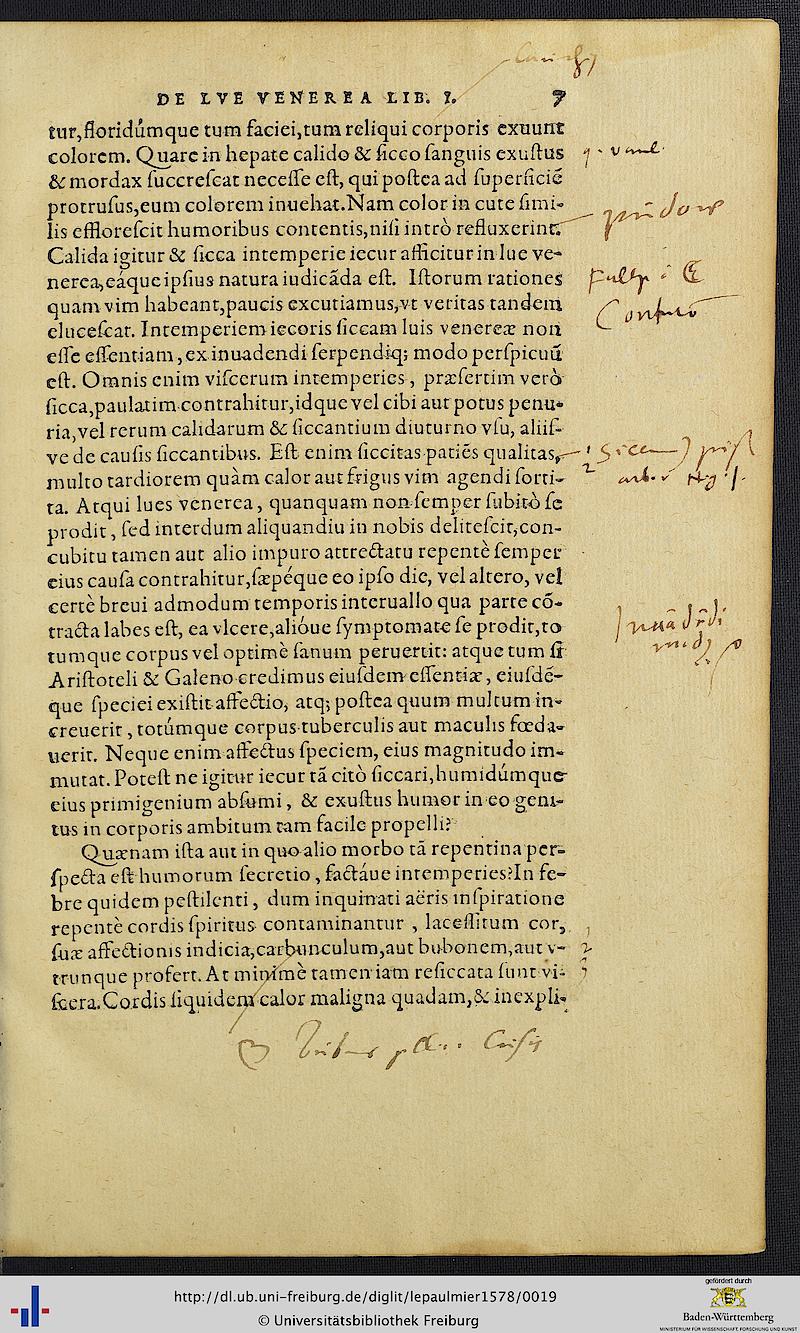 DE LVE VENEREA LIB. I. 7
tur, floridúmque tum faciei, tum reliqui corporis exuunt
colorem. Quare in hepate calido & ſicco ſanguis exuſtus
& mordax ſuccreſcat neceſſe eſt, qui poſtea ad ſuperficiē
protruſus, eum colorem inuehat. Nam color in cute ſimi-
lis effloreſcit humoribus contentis, niſi intrò refluxerint.
Calida igitur & ſicca intemperie iecur afficitur in lue ve-
nerea, eáque ipſius natura iudicāda eſt. Iſtorum rationes
quam vim habeant, paucis excutiamus, vt veritas tandem
eluceſcat. Intemperiem iecoris ſiccam luis venereæ non
eſſe eſſentiam, ex inuadendi ſerpendiq; modo perſpicuū
eſt. Omnis enim viſcerum intemperies, præſertim verò
ſicca, paulatim contrahitur, idque vel cibi aut potus penu-
ria, vel rerum calidarum & ſiccantium diuturno vſu, aliiſ-
ve de cauſis ſiccantibus. Eſt enim ſiccitas patiēs qualitas,
multo tardiorem quàm calor aut frigus vim agendi ſorti-
ta. Atqui lues venerea, quanquam non ſemper ſubitò ſe
prodit, ſed interdum aliquandiu in nobis deliteſcit, con-
cubitu tamen aut alio impuro attrectatu repentè ſemper
eius cauſa contrahitur, ſæpéque eo ipſo die, vel altero, vel
certè breui admodum temporis interuallo qua parte cō-
tracta labes eſt, ea vlcere, alióue ſymptomate ſe prodit, to
tumque corpus vel optimè ſanum peruertit: atque tum ſi
Ariſtoteli & Galeno credimus eiuſdem eſſentiæ, eiuſdē-
que ſpeciei exiſtit affectio, atq; poſtea quum multum in-
creuerit, totúmque corpus tuberculis aut maculis fœda-
uerit. Neque enim affectus ſpeciem, eius magnitudo im-
mutat. Poteſt ne igitur iecur tā citò ſiccari, humidúmque
eius primigenium abſumi, & exuſtus humor in eo geni-
tus in corporis ambitum tam facile propelli?
Quænam iſta aut in quo alio morbo tā repentina per-
ſpecta eſt humorum ſecretio, factáue intemperies? In fe-
bre quidem peſtilenti, dum inquinati aëris inſpiratione
repentè cordis ſpiritus contaminantur, laceſſitum cor,
ſuæ affectionis indicia, carbunculum, aut bubonem, aut v-
trunque profert. At minimè tamen iam reſiccata ſunt vi-
ſcera. Cordis ſiquidem calor maligna quadam, & inexpli-
http://dl.ub.uni-freiburg.de/diglit/lepaulmier1578/0019
© Universitätsbibliothek Freiburg
gefördert durch
Baden-Württemberg
MINISTERIUM FÜR WISSENSCHAFT, FORSCHUNG UND KUNST